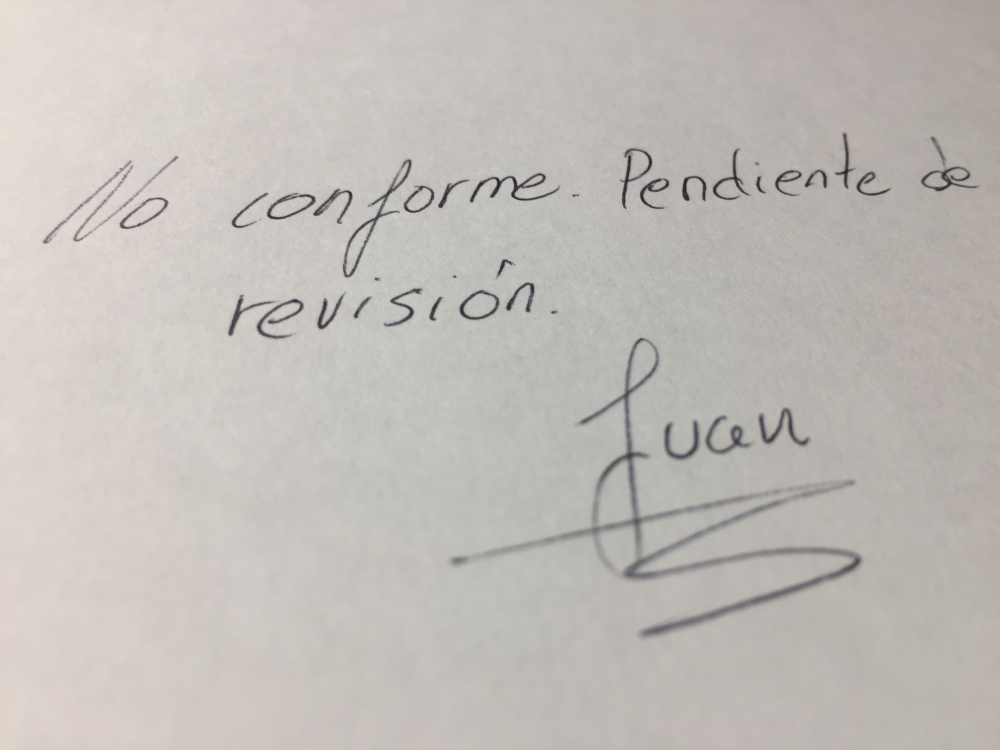 No conforme. Pendiente de
revisión.
Juan